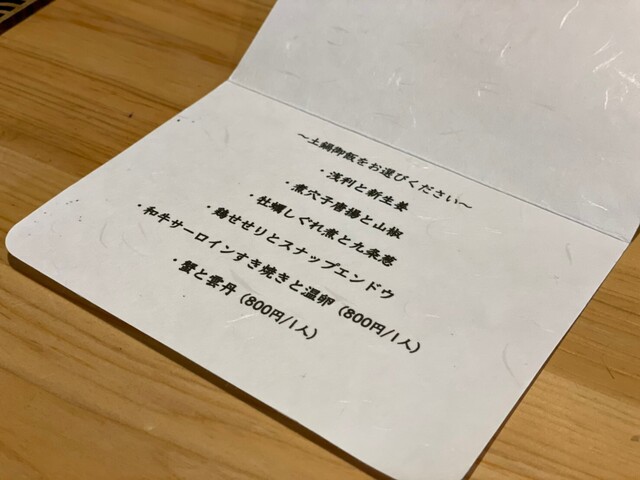 ～土鍋御飯をお選びください～
・浅利と新生姜
・煮穴子唐揚と山椒
・牡蠣しぐれ煮と九条葱
・鶏せせりとスナップエンドウ
・和牛サーロインすき焼きと温卵（800円/1人）
・蟹と雲丹（800円/1人）